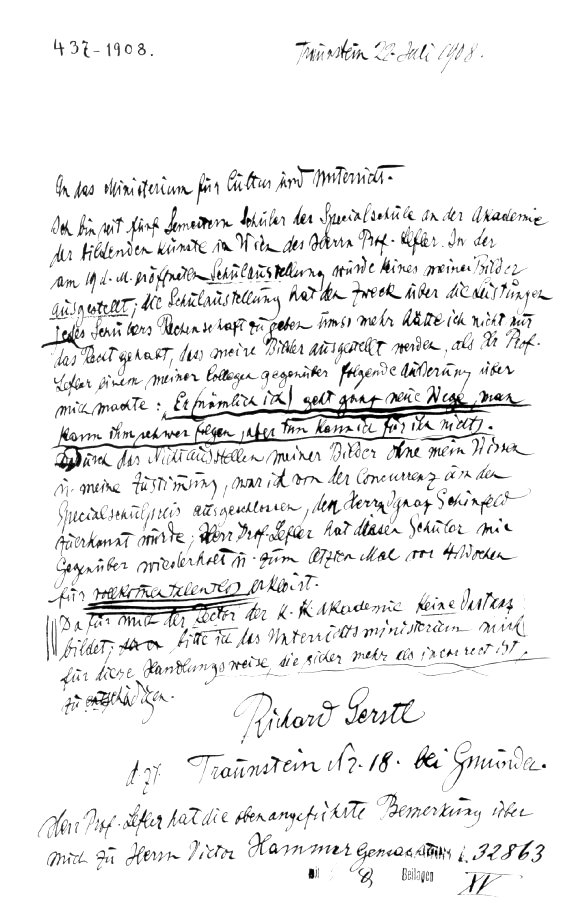 437-1908. Traunstein 22. Juli 1908.
In das Ministerium für Cultus und Unterricht.
Ich bin seit fünf Semestern Schüler der Specialschule an der Akademie
der bildenden Künste in Wien des Herrn Prof. Lefler. In der
am 19 d. M. eröffneten Schulausstellung wurde keines meiner Bilder
ausgestellt; die Schulausstellung hat den Zweck über die Leistungen
jedes Schülers Rechenschaft zu geben umso mehr hätte ich nicht nur
das Recht gehabt, dass meine Bilder ausgestellt werden, als Hr Prof.
Lefler einem meiner Collegen gegenüber folgende Äußerung über
mich machte: „Er (nämlich ich) geht ganz neue Wege, man
kann ihm schwer folgen, aber tun kann ich für ihn nichts.
Dadurch das Nichtausstellen meiner Bilder ohne mein Wissen
u. meine Zustimung, war ich von der Concurrenz um den
Specialschulpreis ausgeschlossen, der Herrn Ignaz Schönfeld
zuerkannt wurde; Herr Prof. Lefler hat diesen Schüler mir
Gegenüber wiederholt u. zum letzten Mal vor 4 Wochen
für vollkomen talentlos erklärt.
Da für mich der Rector der k. k. Akademie keine Instanz
bildet; bitte ich das Unterrichtsministerium mich
für diese Handlungsweise, die sicher mehr als incorrect ist,
zu entschädigen.
Richard Gerstl
d. zt. Traunstein Nr. 18. bei Gmunden.
Herr Prof. Lefler hat die obenangeführte Bemerkung über
mich zu Herrn Victor Hammer gemacht. 32863
8 Beilagen XV